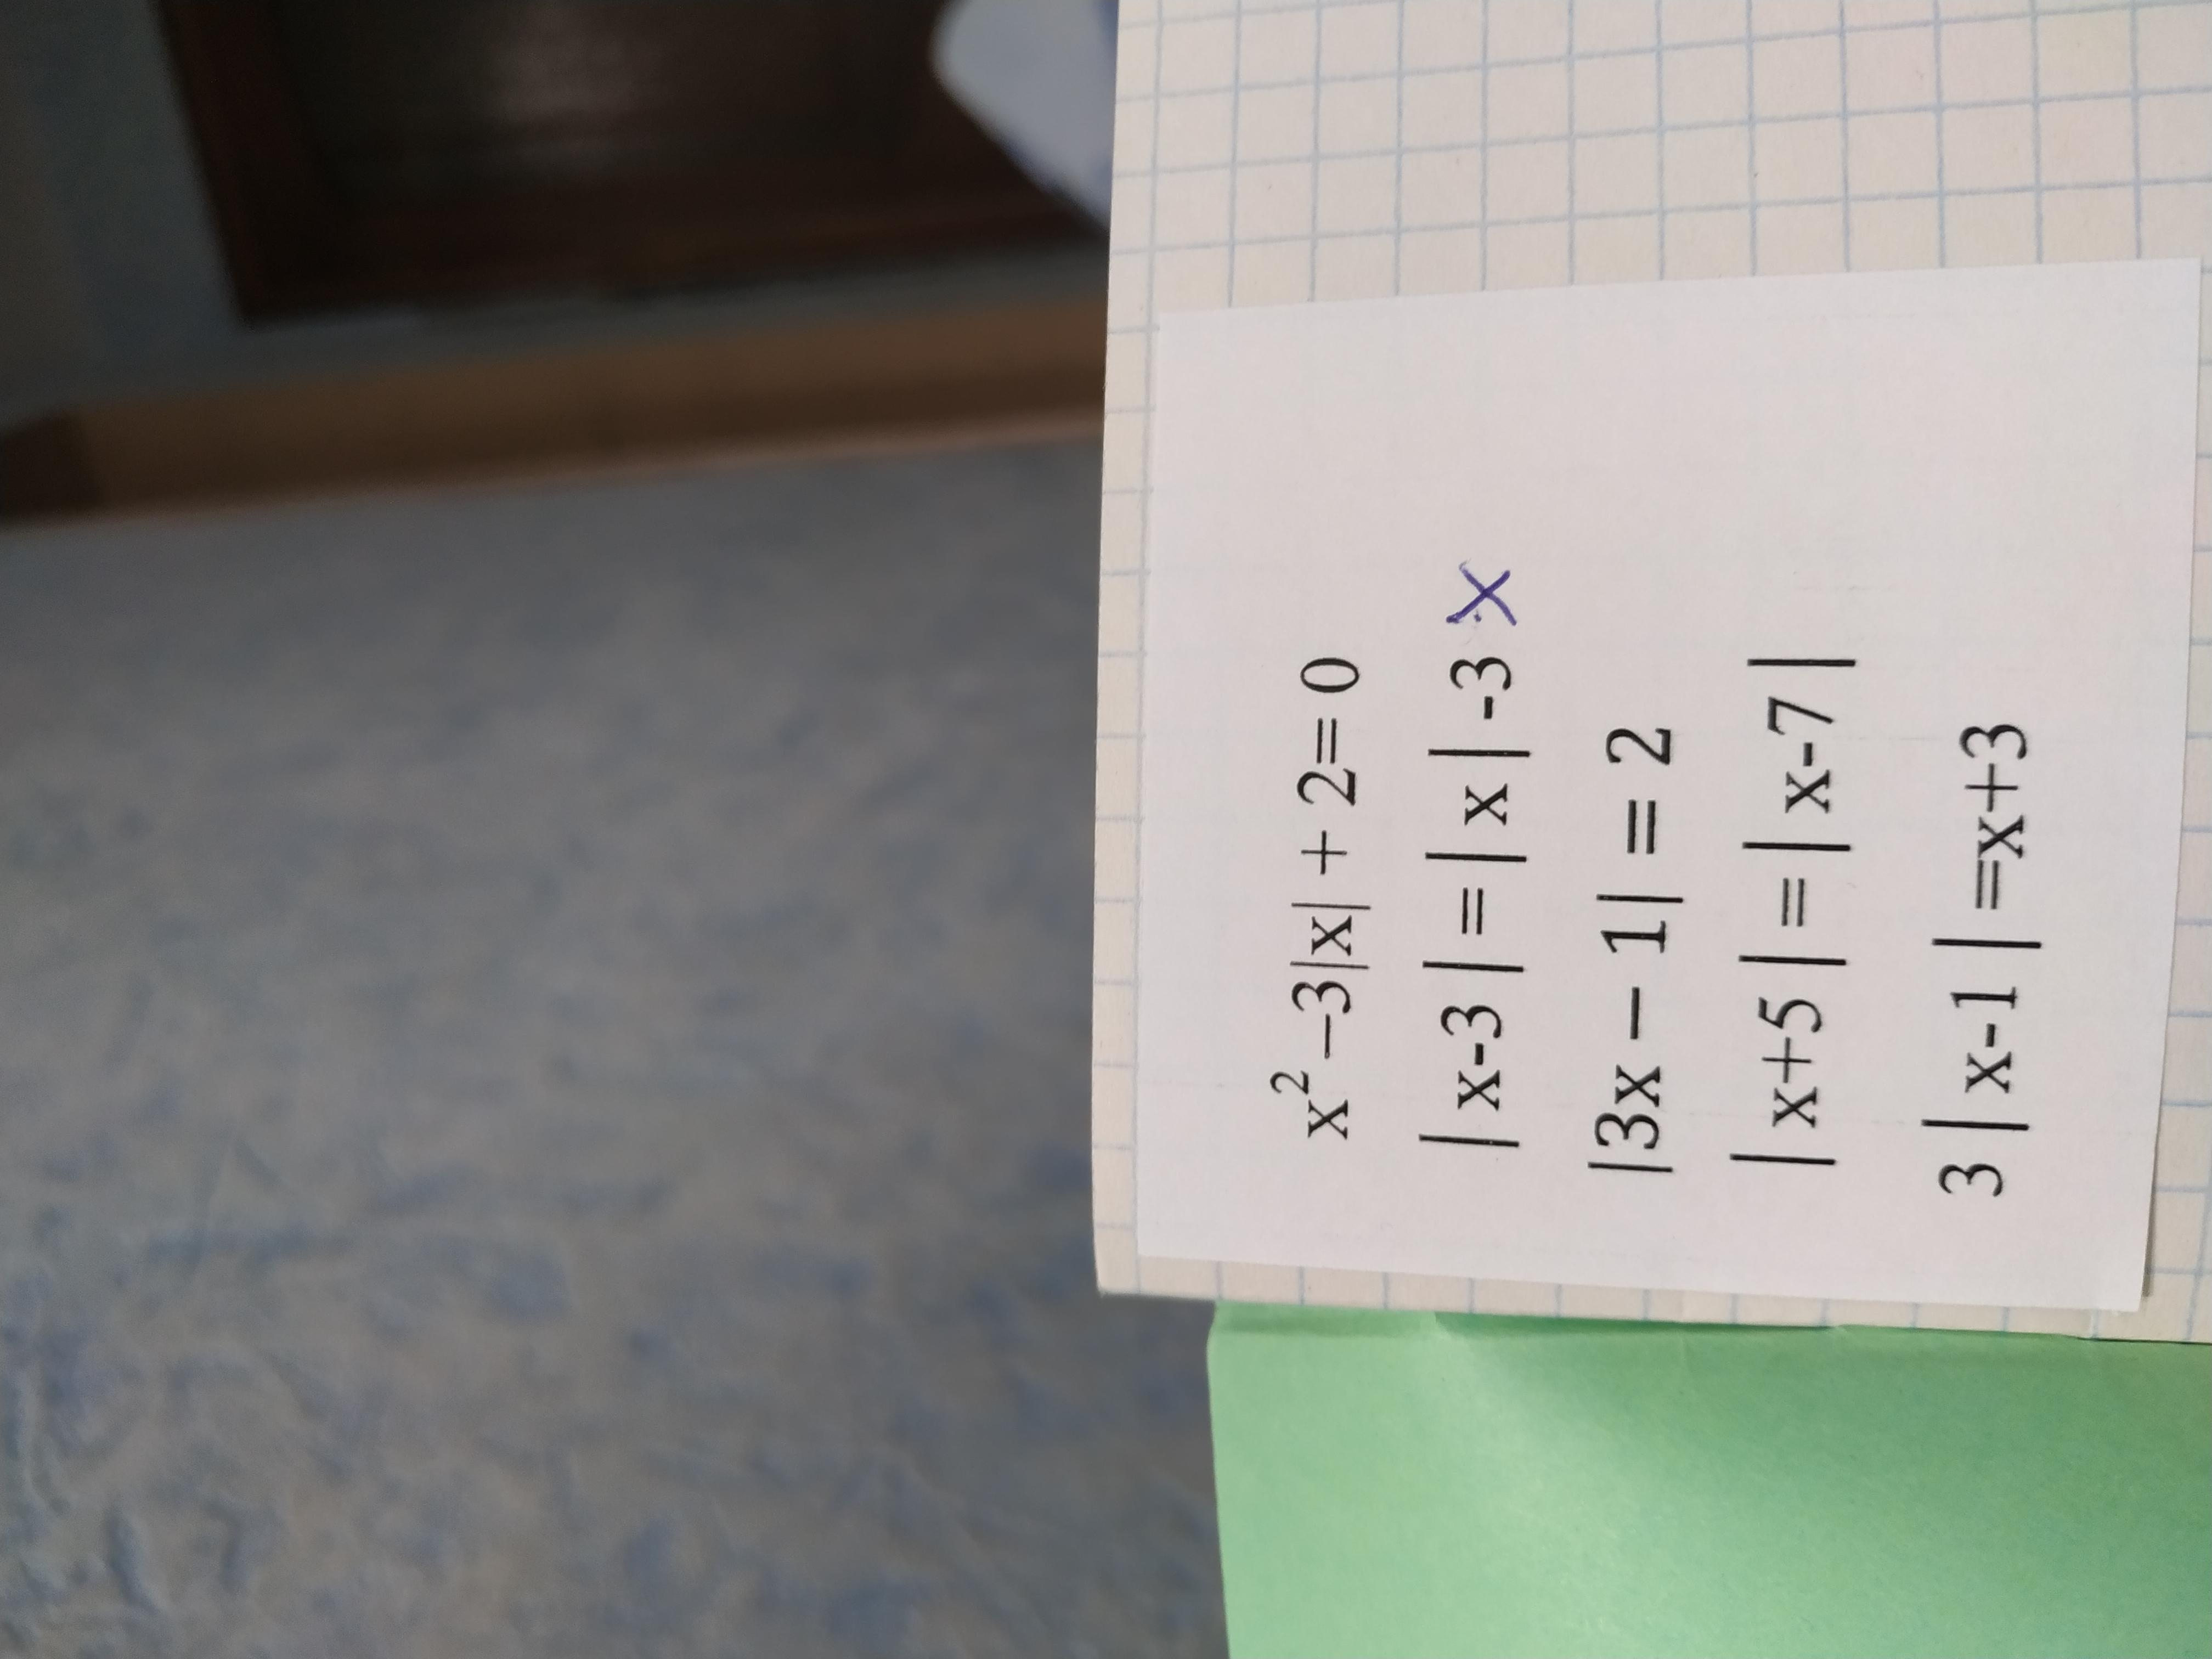 x²–3|x| + 2= 0
|x-3|=|x|-3 x
|3x – 1| = 2
|x+5|=|x-7|
3|x-1|=x+3